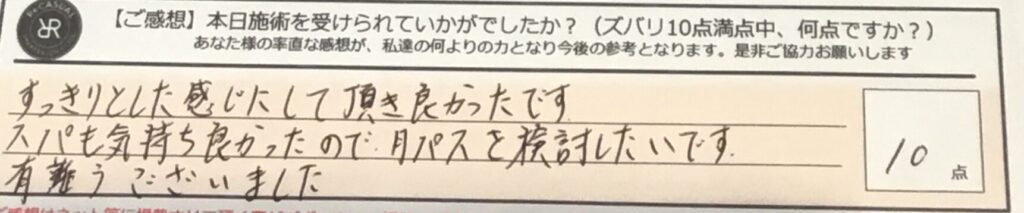 【ご感想】本日施術を受けられていかがでしたか？（ズバリ10点満点中、何点ですか？）
あなた様の率直な感想が、私達の何よりの力となり今後の参考となります。是非ご協力お願いします
すっきりとした感じにして頂き良かったです
スパも気持ち良かったので、月パスを検討したいです。
有難うございました
10点